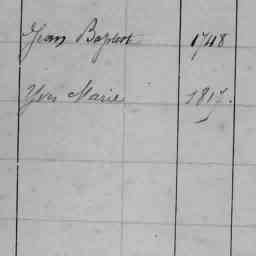 Jean Baptist 1748
Yves Marie 1817.